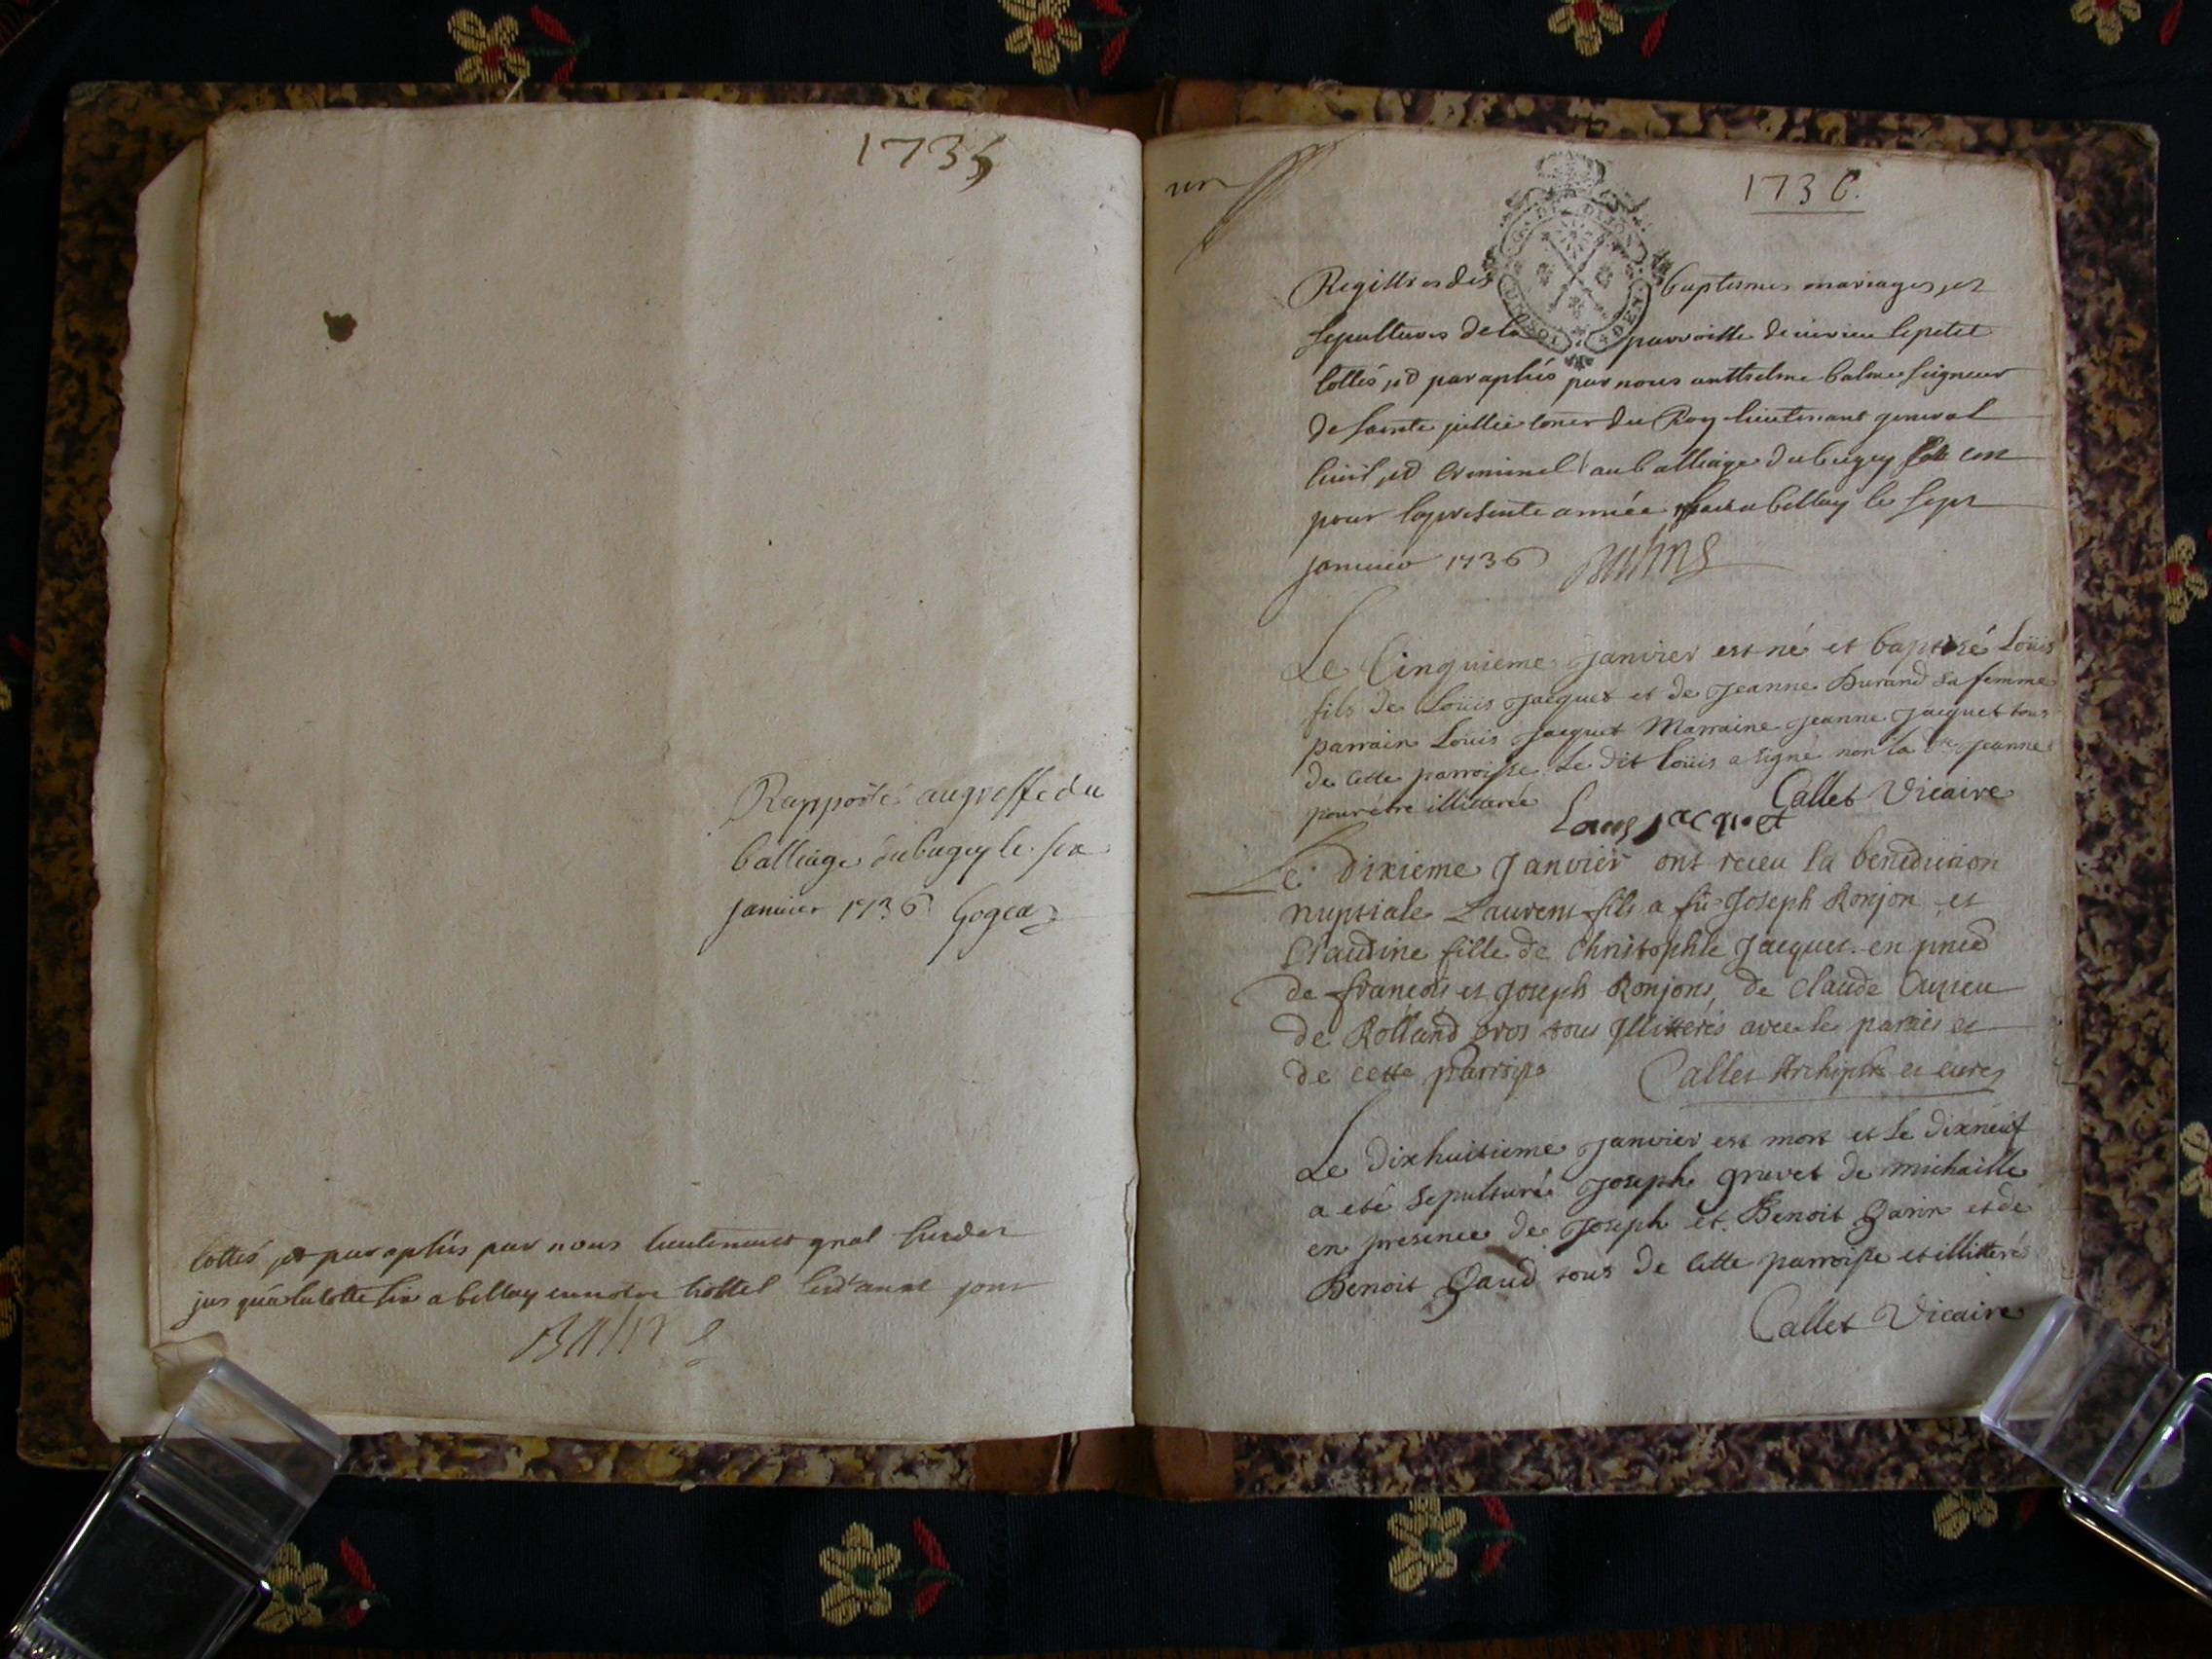 1735
Rapporté au greffe du
balliage du bugey le six
janvier 1736 Gogea
Cottés et paraphés par nous lieutenant gnal
jusqu'à la cotte six a bellay en notre hottel jour
Balme
un
1736.
Registres des baptesmes mariages, et
sepultures de la parroisse de virieu le petit
Cottés et paraphés par nous anthelme balme seigneur
de sainte jullie coner du Roy lieutenant general
Civil et Criminel au balliage du bugey
pour la presente année fait a bellay le sept
janvier 1736 Balme
Le Cinquieme Janvier est né et baptisé Loüis
fils de Loüis Jacquet et de Jeanne Durand sa femme
parrain Loüis Jacquet Marraine Jeanne Jacquet tous
de cette parroisse Le dit Loüis a signé non la dte Jeanne
pour etre illitterée Callet Vicaire
Louis jacquet
Le dixieme Janvier ont receu la benediction
nuptiale Laurent fils a fû Joseph Ronjon et
Claudine fille de Christophle Jacquet en pnce
de francois et Joseph Ronjons, de Claude
de Rolland gros tous Illitterés avec les parties et
de cette parroisse Callet Archiptre et curé
Le Dixhuitieme Janvier est mort et le dixneuf
a eté sepulturé Joseph gravet de michaille
en presence de Joseph et Benoit Garin et de
Benoit Gaud tous de cette parroisse et illitterés
Callet Vicaire